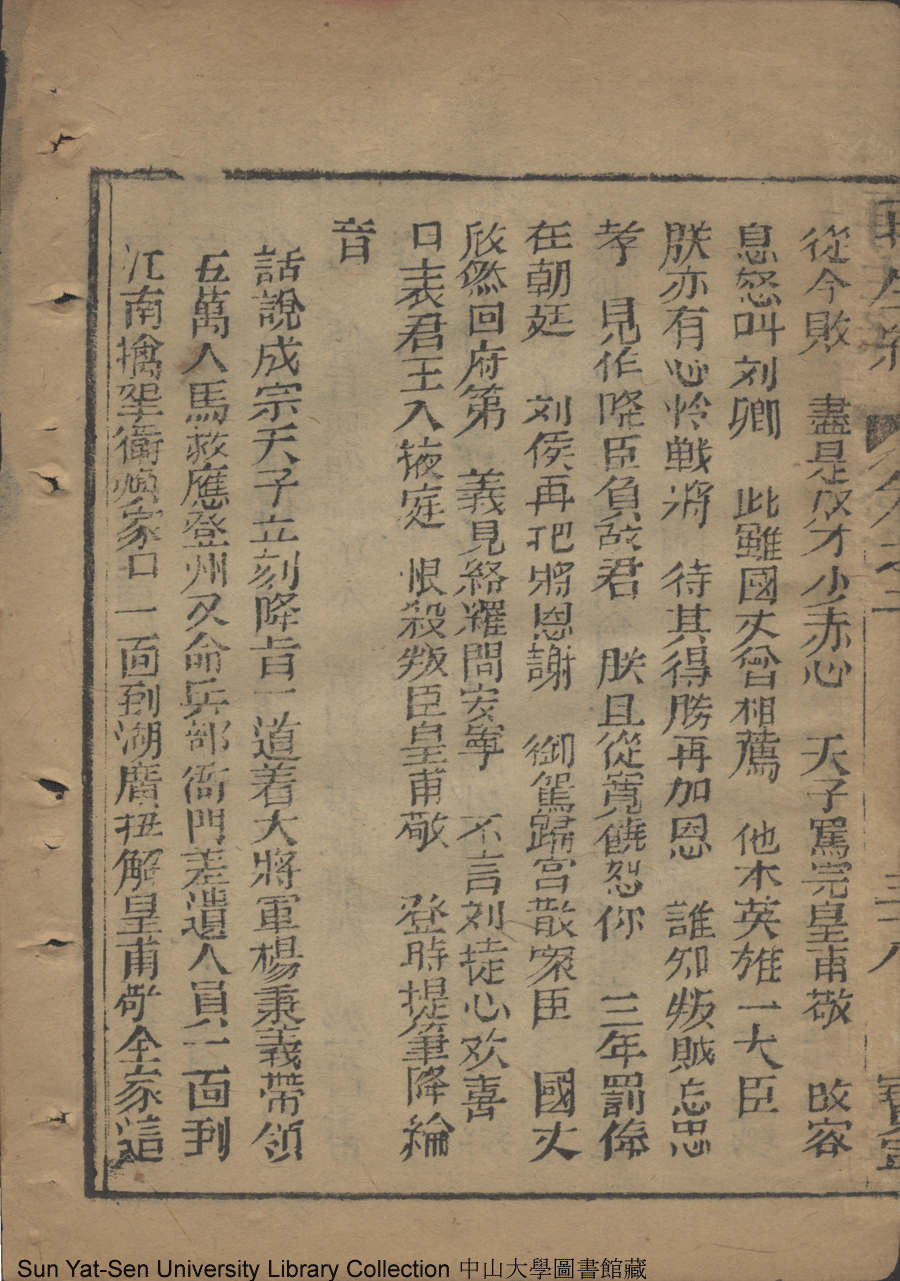 從今敗　盡是艮才少赤心　天子罵完皇甫敬　改容
息怒叫刘卿　此雖國丈曾相薦　他本英雄一大臣
朕亦有心怜戦將　待其得勝再加恩　誰知叛賊忘忠
孝　見作降臣負故君　朕且從寬饒恕你　三年罰俸
在朝廷　刘侯再把將恩謝　御駕歸宮散衆臣　國丈
欣然回府第　義見絡䌰問安寧　不言刘徒心欢喜
口表君王入掖庭　恨殺叛臣皇甫敬　登時提筆降綸
音
話說成宗天子立刻降旨一道着大將軍楊秉義帶領
五萬人馬救應登州又命兵部衙門差遣人員一面到
江南擒拏衛煥家口一面到湖廣扭解皇甫敬全家這
Sun Yat-Sen University Library Collection 中山大學圖書館藏